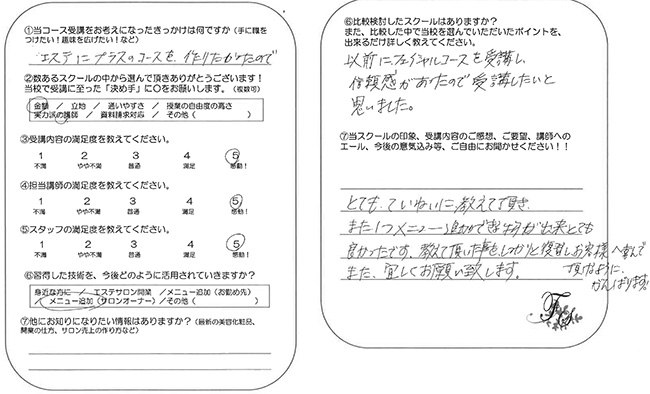 ①当コース受講をお考えになったきっかけは何ですか（手に職を
つけたい！趣味を広げたい！など）
エステにプラスのコースを、作りたかたので
②数あるスクールの中から選んで頂きありがとうございます！
当校で受講に至った「決め手」に〇をお願いします。（複数可）
金額 ／ 立地 ／ 通いやすさ ／ 授業の自由度の高さ
実力派の講師 ／ 資料請求対応 ／ その他（ ）
③受講内容の満足度を教えてください。
1 2 3 4 5
不満 やや不満 普通 満足 感動！
④担当講師の満足度を教えてください。
1 2 3 4 5
不満 やや不満 普通 満足 感動！
⑤スタッフの満足度を教えてください。
1 2 3 4 5
不満 やや不満 普通 満足 感動！
⑥習得した技術を、今後どのように活用されていきますか？
身近な方に ／ エステサロン開業 ／メニュー追加（お勤め先）
／ メニュー追加（サロンオーナー）／その他（ ）
⑦他にお知りになりたい情報はありますか？（最新の美容化粧品、
開業の仕方、サロン売上の作り方など）
⑥比較検討したスクールはありますか？
また、比較した中で当校を選んでいただいたポイントを、
出来るだけ詳しく教えてください。
以前にフェイシャルコースを受講し、
信頼感があたので受講したいと
思いました。
⑦当スクールの印象、受講内容のご感想、ご要望、講師への
エール、今後の意気込み等、ご自由にお聞かせください！！
とても、ていねいに教えて頂き、
また1つメニュー追加できる物が出来とても
良かったです。教えて頂いた事をしっかりと復習しお客様へ喜んで
頂けるように、
がんばります!!
また、宜しくお願い致します。